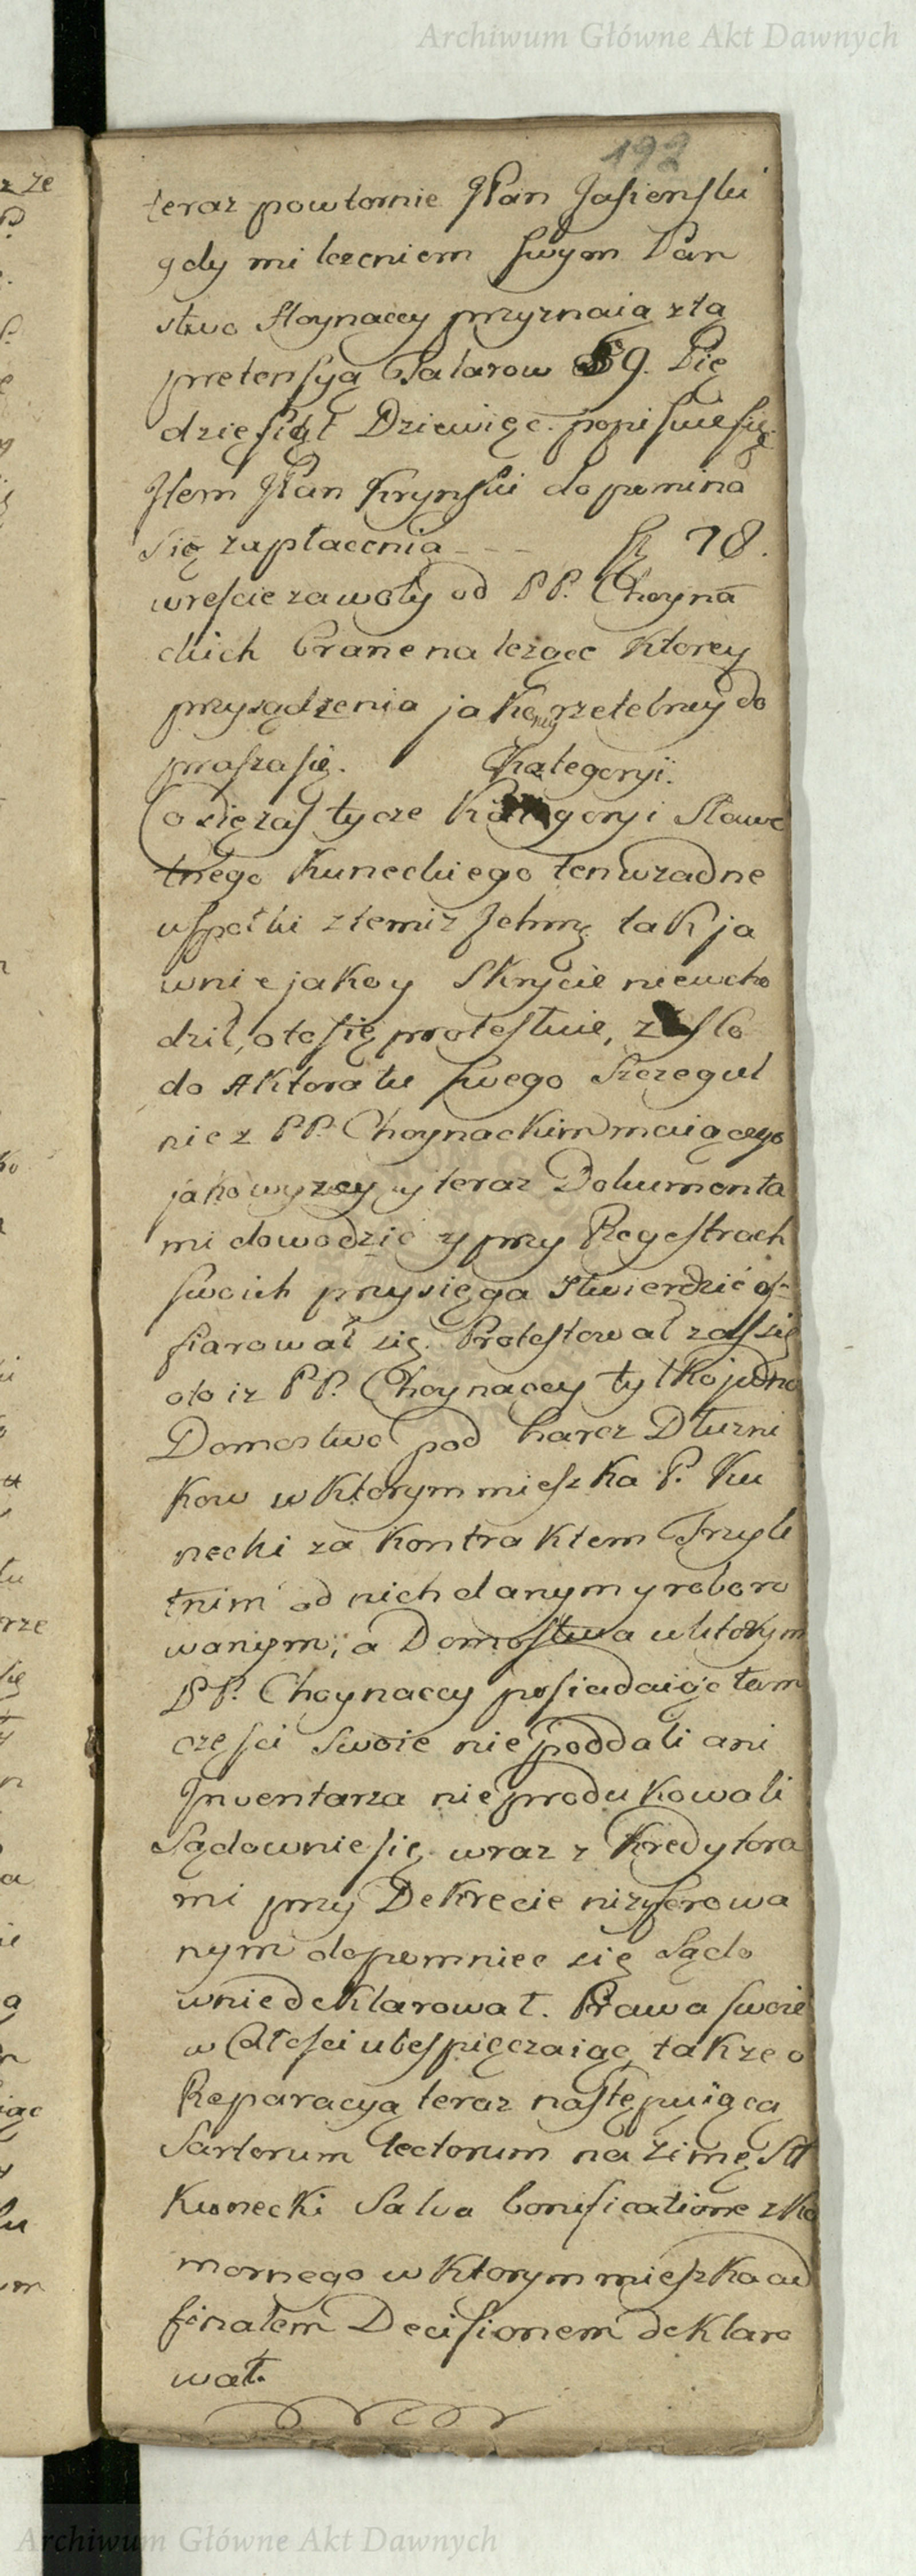 Archiwum Główne Akt Dawnych
192
teraz powtornie JPan Jasienski
gdy milczeniem swym Pan
stwo Hoynaccy przyznaią z tą
pretensyą Talarow 59. Pię
dziesiąt Dziewięc. popisuie się.
Item JPan Krynski dopomina
się zapłacenia - - - 78.
wreście za woły od PP. Choyna
ckich brane należące ktorey
przysądzenia jako rzetelney do
prasza się. Kategoryi.
Co się zaś tycze Kategoryi Sławe
tnego Kuneckiego ten w zadne
uspołki z temiz Ichmę tak ja
wnie jako y skrycie niewcho
dził, oto się protestuie, z
do Aktoratu swego szczegul
nie z PP. Choynackim maiącego
jako wyzey y teraz Dokumenta
mi dowodzić y przy Regestrach
swoich przysięga stwierdzić of-
fiarował się. Protestował zaś się
oto iz PP. Choynaccy tylko jedno
Domostwo pod harcz Dłuzni
kow w ktorym mieszka P. Ku
necki za kontraktem Trzyle
tnim od nich danym y roboro
wanym, a Domostwa w ktorym
PP. Choynaccy posiadaiąc tam
częsci swoie nie poddali ani
Inventarza nie produkowali
Sądownie się wraz z Kredytora
mi przy Dekrecie nizyferowa
nym dopomniec się Sądo
wnie deklarował. Prawa swoie
w Całosci ubespięczaiąc także o
Reparacyą teraz następuiącą
Sartorum tectorum na zimę Sł
Kunecki Salva bonificatione z Ko
mornego w ktorym mieszka ad
finalem Decisionem deklaro
wał.
Archiwum Główne Akt Dawnych